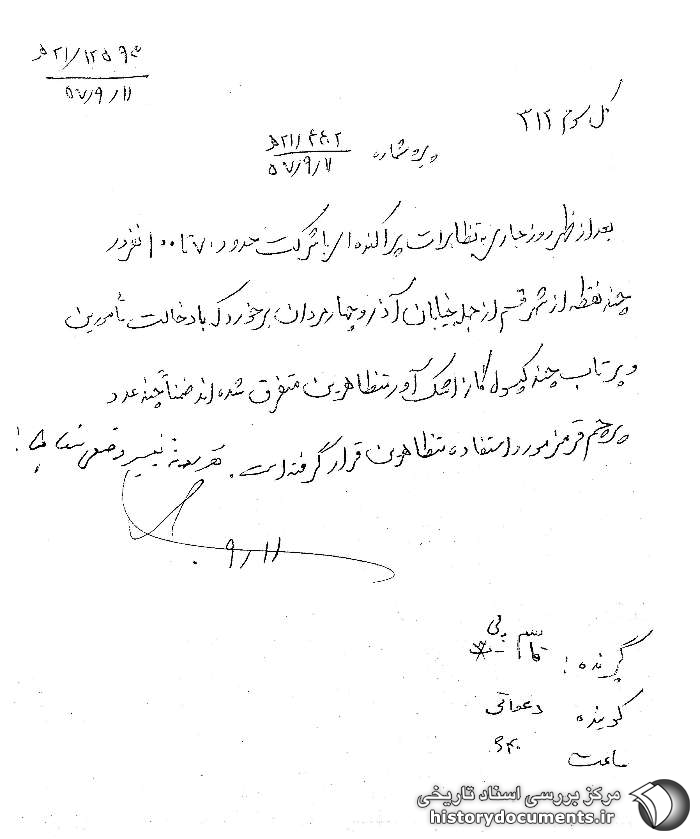 ۲۱/۱۲۵۹۴ ﻫ
۵۷/۹/۱۱
کل سوم ۳۱۲
پیرو شماره ۲۱/۴۴۰۲ ﻫ
۵۷/۹/۱۱
بعد از ظهر روز جاری تظاهرات پراکنده‌ای با شرکت حدود ۷۰ تا ۱۰۰ نفر در
چند نقطه از شهر قم از جمله خیابان آذر و چهارمردان برخورد که با دخالت مأمورین
و پرتاب چند کپسول گاز اشک‌آور متظاهرین متفرق شده‌اند ضمناً چند عدد
پرچم قرمز مورد استفاده متظاهرین قرار گرفته است.
۹/۱۱
گیرنده:
گوینده
ساعت
مرکز بررسی اسناد تاریخی
historydocuments.ir